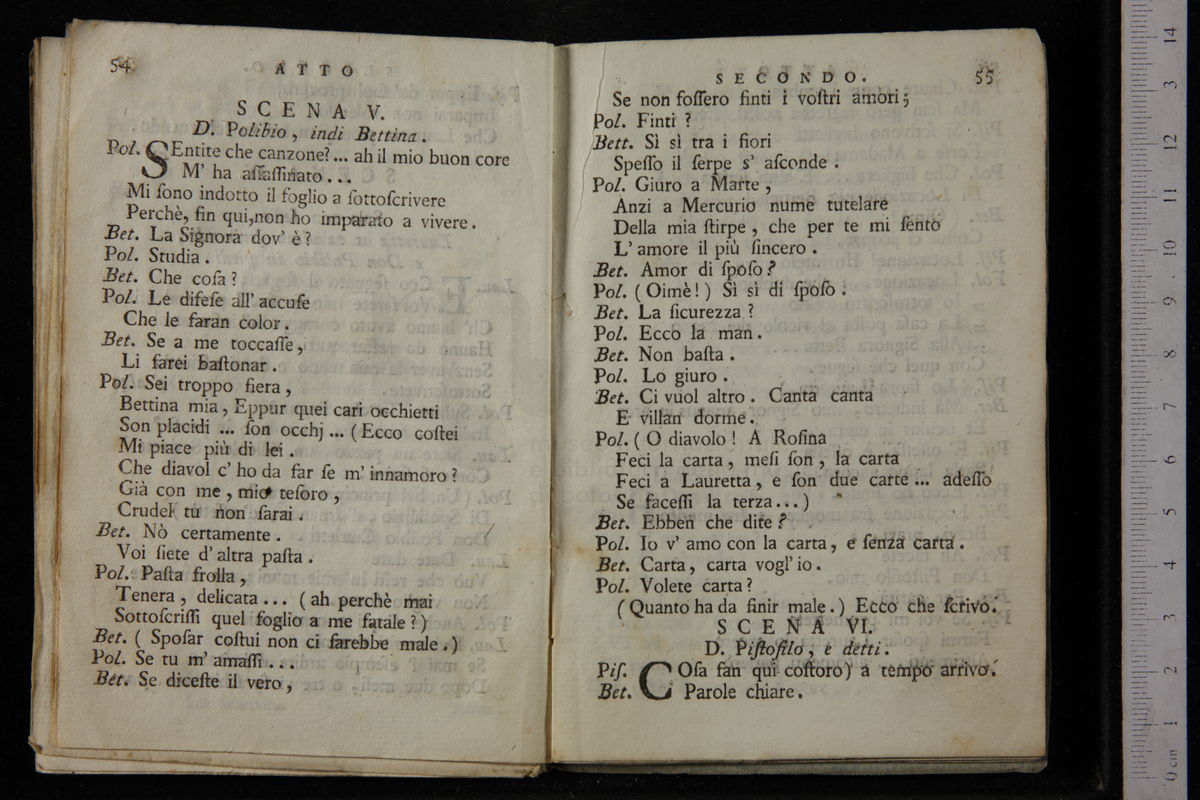 54
ATTO
SCENA V.
D. Polibio, indi Bettina.
Pol. SEntite che canzone?... ah il mio buon core
M' ha aſſaſſinato...
Mi ſono indotto il foglio a ſottoſcrivere
Perchè, fin qui, non ho imparato a vivere.
Bet. La Signora dov' è?
Pol. Studia.
Bet. Che coſa?
Pol. Le difeſe all' accuſe
Che le faran color.
Bet. Se a me toccaſſe,
Li farei baſtonar.
Pol. Sei troppo fiera,
Bettina mia, Eppur quei cari occhietti
Son placidi ... ſon occhj ... (Ecco coſtei
Mi piace più di lei.
Che diavol c' ho da far ſe m' innamoro?
Già con me, mio teſoro,
Crudel tu non ſarai.
Bet. Nò certamente.
Voi ſiete d' altra paſta.
Pol. Paſta frolla,
Tenera, delicata... (ah perchè mai
Sottoſcriſſi quel foglio a me fatale?)
Bet. (Spoſar coſtui non ci farebbe male.)
Pol. Se tu m' amaſſi...
Bet. Se diceſte il vero,
SECONDO.
55
Se non foſſero finti i voſtri amori;
Pol. Finti?
Bett. Sì sì tra i fiori
Speſſo il ſerpe s' aſconde.
Pol. Giuro a Marte,
Anzi a Mercurio nume tutelare
Della mia ſtirpe, che per te mi ſento
L' amore il più ſincero.
Bet. Amor di ſpoſo?
Pol. (Oimè!) Sì sì di ſpoſo.
Bet. La ſicurezza?
Pol. Ecco la man.
Bet. Non baſta.
Pol. Lo giuro.
Bet. Ci vuol altro. Canta canta
E villan dorme.
Pol. (O diavolo! A Roſina
Feci la carta, meſi ſon, la carta
Feci a Lauretta, e ſon due carte ... adeſſo
Se faceſſi la terza...)
Bet. Ebben che dite?
Pol. Io v' amo con la carta, e ſenza carta.
Bet. Carta, carta vogl' io.
Pol. Volete carta?
(Quanto ha da finir male.) Ecco che ſcrivo.
SCENA VI.
D. Piſtofilo, e detti.
Piſ. COſa fan qui coſtoro) a tempo arrivo.
Bet. Parole chiare.